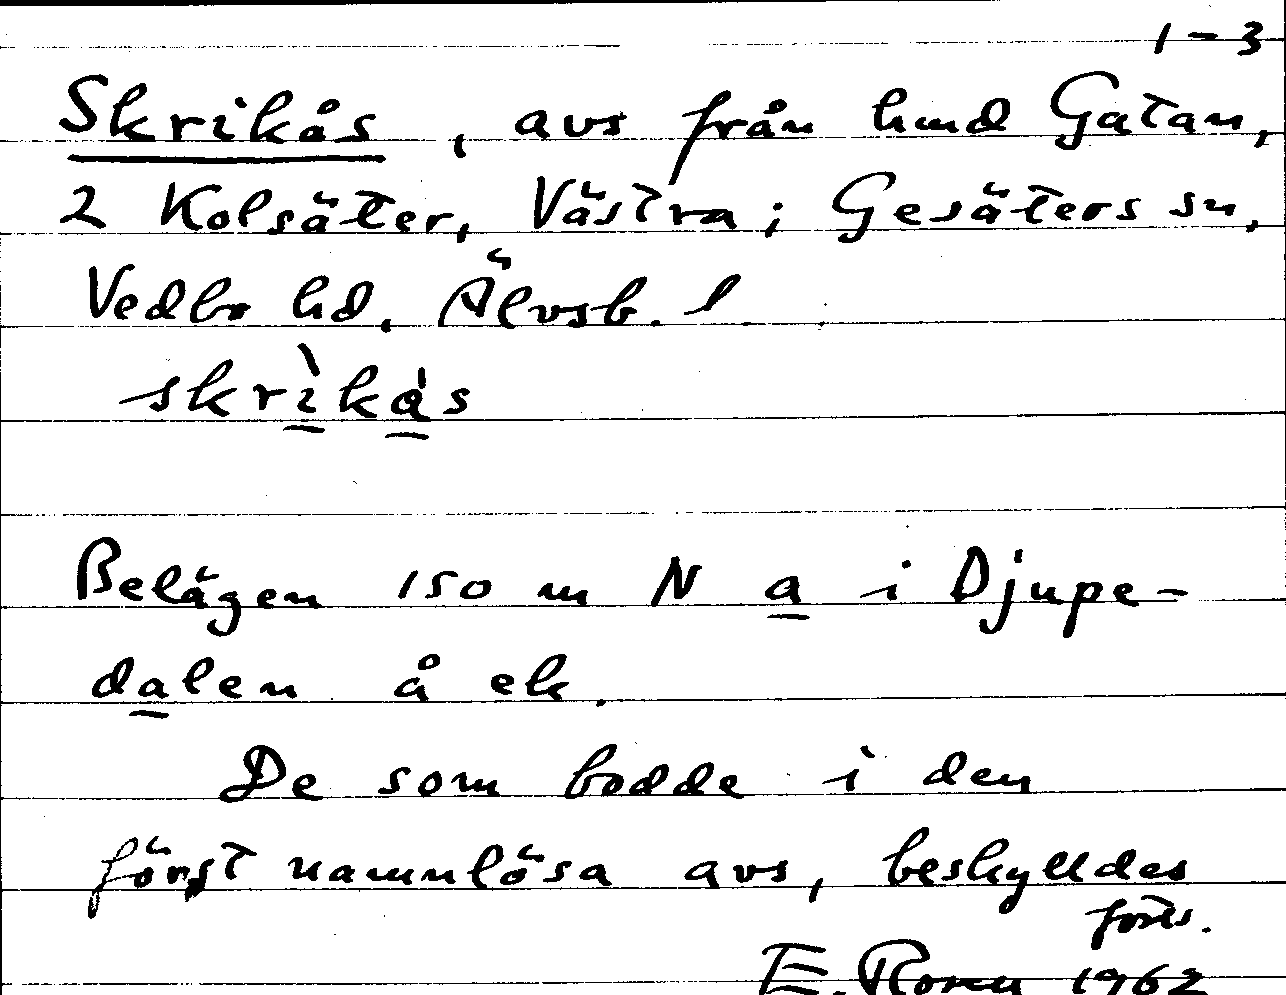 1-3
Skrikås, avs från hmd Gatan,
2 Kolsäter, Västra; Gesäters sn,
Vedbo hd. Älvsb. l
skrìkås
Belägen 150 m N a i Djupe-
dalen å ek.
De som bodde i den
först namnlösa avs, beskylldes
forts.
E. Rosen 1962